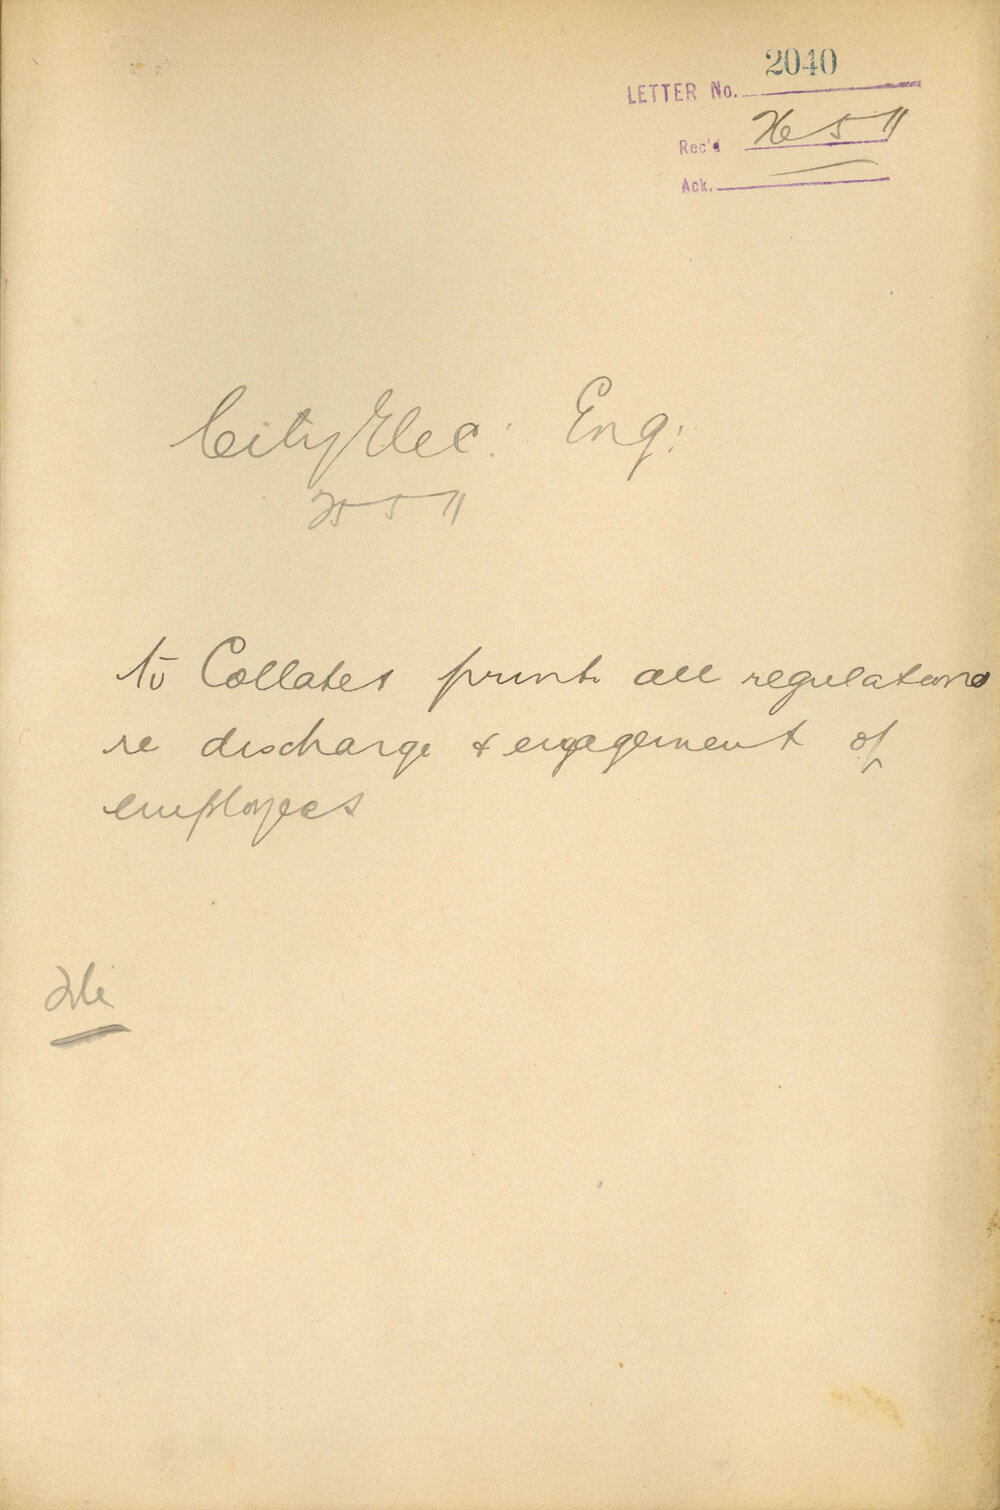 2040
LETTER No.
Rec'd 26 5 11
Ack.
City Elec: Eng:
25 5 11
to Collate & print all regulations
re discharge & engagement of
employees